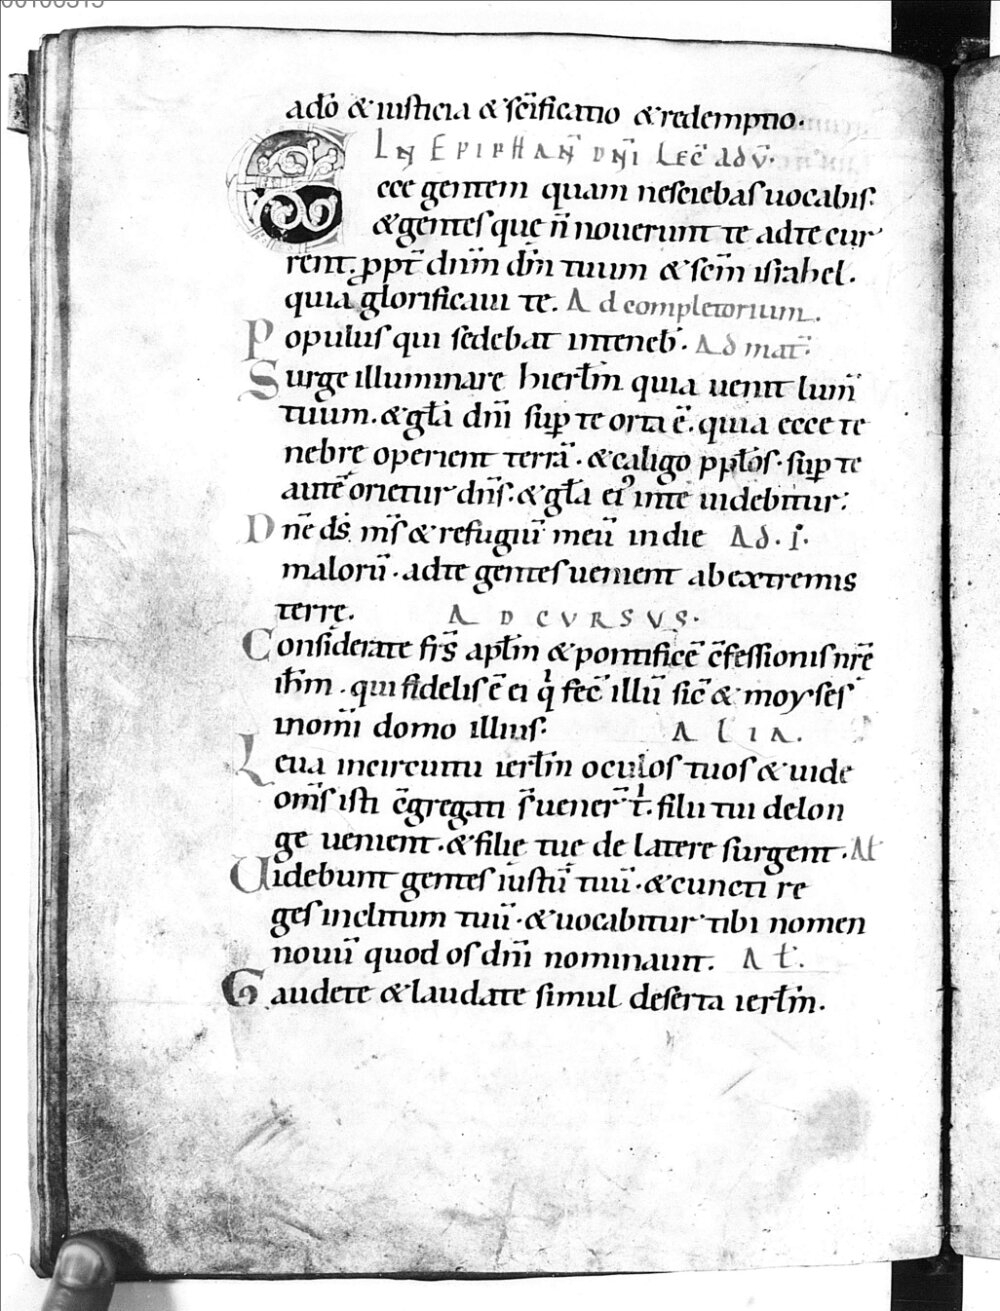 00100315
ađo & iusticia & sc̄ificatio & redemptio.
IN EPIPHAN̄ DN̄I LEC̄ ad v̄.
Ecce gentem quam nesciebas uocabis:
& gentes que n̄ nouerunt te ad te cur
rent. ꝓpt̄ dnm̄ dm̄ tuum & scm̄ israhel.
quia glorificaui te. Ad completorium.
Populus qui sedebat inteneb̄. Ad mat̄:
Surge illuminare hierłm quia uenit lum̄
tuum. & gła dn̄i suꝑ te orta ē. quia ecce te
nebrę operient terrā. & caligo ppłos. suꝑ te
autē orietur dn̄s. & gła ei' inte uidebitur:
Dn̄e ds̄ m̄s & refugiū meū indie Ad. i.
malorū. adte gentes uenient abextremis
terrę. AD CVRSVS.
Considerate fr̄s apłm & pontificē c̄fessionis nr̄ę
ih̄m. qui fidelis ē ei q̇ fec̄ illū sic̄ & moyses
inom̄i domo illius. ALIA.
Leua incircuitu ierłm oculos tuos & uide
om̄s isti c̄gregati s̄ uener̄ t̄. filii tui delon
ge uenient. & filię tuę de latere surgent. Ał
Uidebunt gentes iustū tuū. & cuncti re
ges inclitum tuū. & uocabitur tibi nomen
nouū quod os dn̄i nominauit. Ał.
Gaudete & laudate simul deserta ierłm.